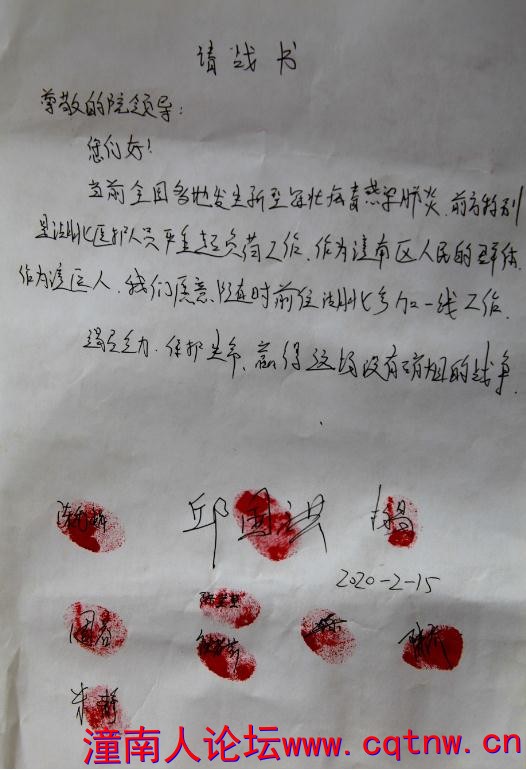 请战书
尊敬的院领导:
您们好!
当前全国各地发生新型冠状病毒感染肺炎、前方特别
是湖北医护人员严重超负荷工作、作为潼南区人民的群体、
作为医人、我们愿意随时前往湖北参加一线工作.
竭尽全力、保护生命、赢得这场没有硝烟的战争.
邱国洪
2020-2-15
周容
朱静
潼南人论坛www.cqtnw.cn